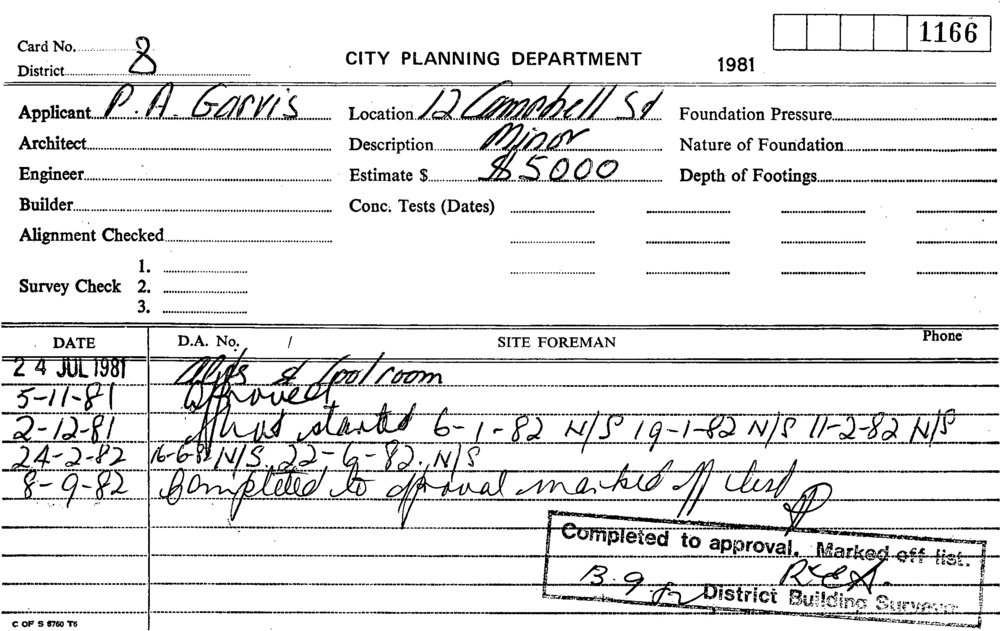 1166
Card No. 8
District
CITY PLANNING DEPARTMENT
1981
Applicant P. A. Garvis
Location 12 Campbell St
Foundation Pressure
Architect
Description Minor
Nature of Foundation
Engineer
Estimate $ $5000
Depth of Footings
Builder
Conc. Tests (Dates)
Alignment Checked
1.
Survey Check 2.
3.
DATE D.A. No. / SITE FOREMAN Phone
24 JUL 1981 & Coolroom
5-11-81 Approved
2-12-81 started 6-1-82 N/S 19-1-82 N/S 11-2-82 N/S
24-2-82 16-6-82 N/S. 22-6-82. N/S
8-9-82 Completed to aproval marked off list
Completed to approval. Marked off list.
District Building Surveyor
C OF S 6760 T6